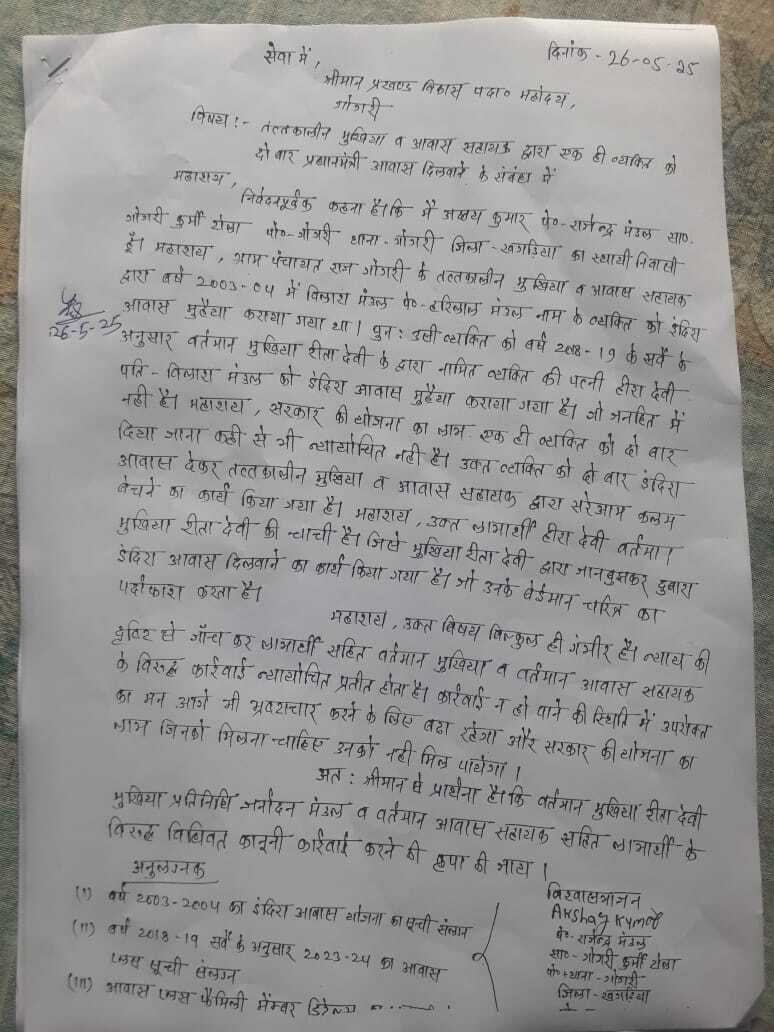 दिनांक - 26-05-25
सेवा में,
श्रीमान प्रखण्ड विकास पदा० महोदय,
गोगरी
विषय :- तत्तकालीन मुखिया व आवास सहायक द्वारा एक ही व्यक्ति को
दो बार प्रधानमंत्री आवास दिलवाने के संबंध में
महाशय,
निवेदनपूर्वक कहना है। कि मैं अक्षय कुमार पे०- राजेन्द्र मंडल सा०-
गोगरी कुर्मी टोला पो०- गोगरी थाना- गोगरी जिला- खगड़िया का स्थायी निवासी
हूँ। महाशय, ग्राम पंचायत राज गोगरी के तत्तकालीन मुखिया व आवास सहायक
द्वारा वर्ष 2003-04 में विलाश मंडल पे०- हरिलाल मंडल नाम के व्यक्ति को इंदिरा
आवास मुहैया कराया गया था। पुन: उसी व्यक्ति को वर्ष 2018-19 के सर्वे के
26-5-25
अनुसार वर्तमान मुखिया रीता देवी के द्वारा नामित व्यक्ति की पत्नी हीरा देवी
पति- विलाश मंडल को इंदिरा आवास मुहैया कराया गया है। जो जनहित में
नही है। महाशय, सरकार की योजना का लाभ एक ही व्यक्ति को दो बार
दिया जाना कही से भी न्यायोचित नही है। उक्त व्यक्ति को दो बार इंदिरा
आवास देकर तत्तकालीन मुखिया व आवास सहायक द्वारा सरेआम कलम
बेचने का कार्य किया गया है। महाशय, उक्त लाभार्थी हीरा देवी वर्तमा।
मुखिया रीता देवी की चाची है। जिसे मुखिया रीता देवी द्वारा जानबुझकर दुबारा
इंदिरा आवास दिलवाने का कार्य किया गया है। जो उनके बेईमान चरित्र का
पर्दाफाश करता है।
महाशय, उक्त विषय बिल्कुल ही गंभीर है। न्याय की
दृष्टि से जाँच कर लाभार्थी सहित वर्तमान मुखिया व वर्तमान आवास सहायक
के विरुद्ध कार्रवाई न्यायोचित प्रतीत होता है। कार्रवाई न हो पाने की स्थिति में उपरोक्त
का मन आगे भी भ्रष्टाचार करने के लिए बढा रहेगा और सरकार की योजना का
लाभ जिनको मिलना चाहिए उनको नही मिल पायेगा।
अत: श्रीमान से प्रार्थना है। कि वर्तमान मुखिया रीता देवी
मुखिया प्रतिनिधि जर्नादन मंडल व वर्तमान आवास सहायक सहित लाभार्थी के
विरुद्ध विधिवत कानूनी कार्रवाई करने की कृपा की जाय।
अनुलग्नक
(I) वर्ष 2003-2004 का इंदिरा आवास योजना का सूची संलग्न
(II) वर्ष 2018-19 सर्वे के अनुसार 2023-24 का आवास
प्लस सूची संलग्न
(III) आवास प्लस फैमिली मेंम्बर
विश्वासभाजन
Akshay Kumar
पे०- राजेन्द्र मंडल
सा०- गोगरी कुर्मी टोला
पो०+थाना- गोगरी
जिला- खगड़िया